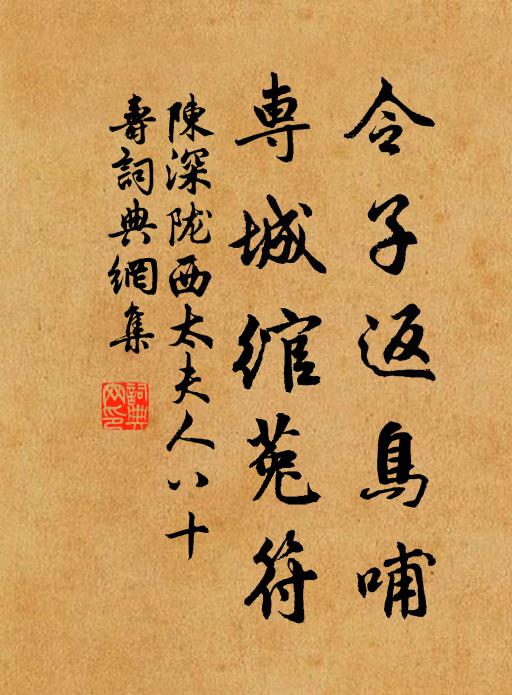 令子返鳥哺
専城綰菟符
陳深陇西太夫人八十
壽詞典網集
詞典網印